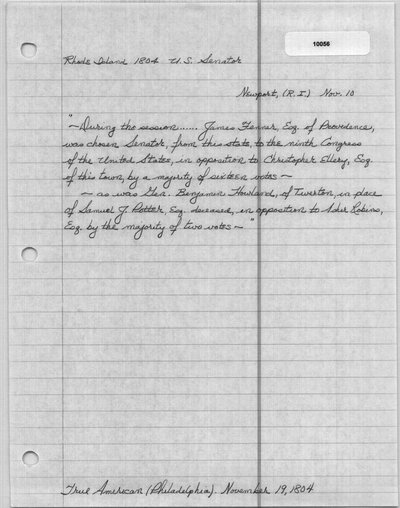 10056
Rhode Island 1804 U.S. Senator
Newport, (R.I.) Nov. 10
"
~During the session...... James Fenner, Esq. of Providence,
was chosen Senator, from this state, to the ninth Congress
of the United States, in opposition to Christopher Ellery, Esq.
of this town, by a majority of sixteen votes~
~ as was Gen. Benjamin Howland, of Tiverton, in place
of Samuel J. Potter, Esq. deceased, in opposition to Asher Robins,
Esq. by the majority of two votes~"
True American (Philadelphia). November 19, 1804